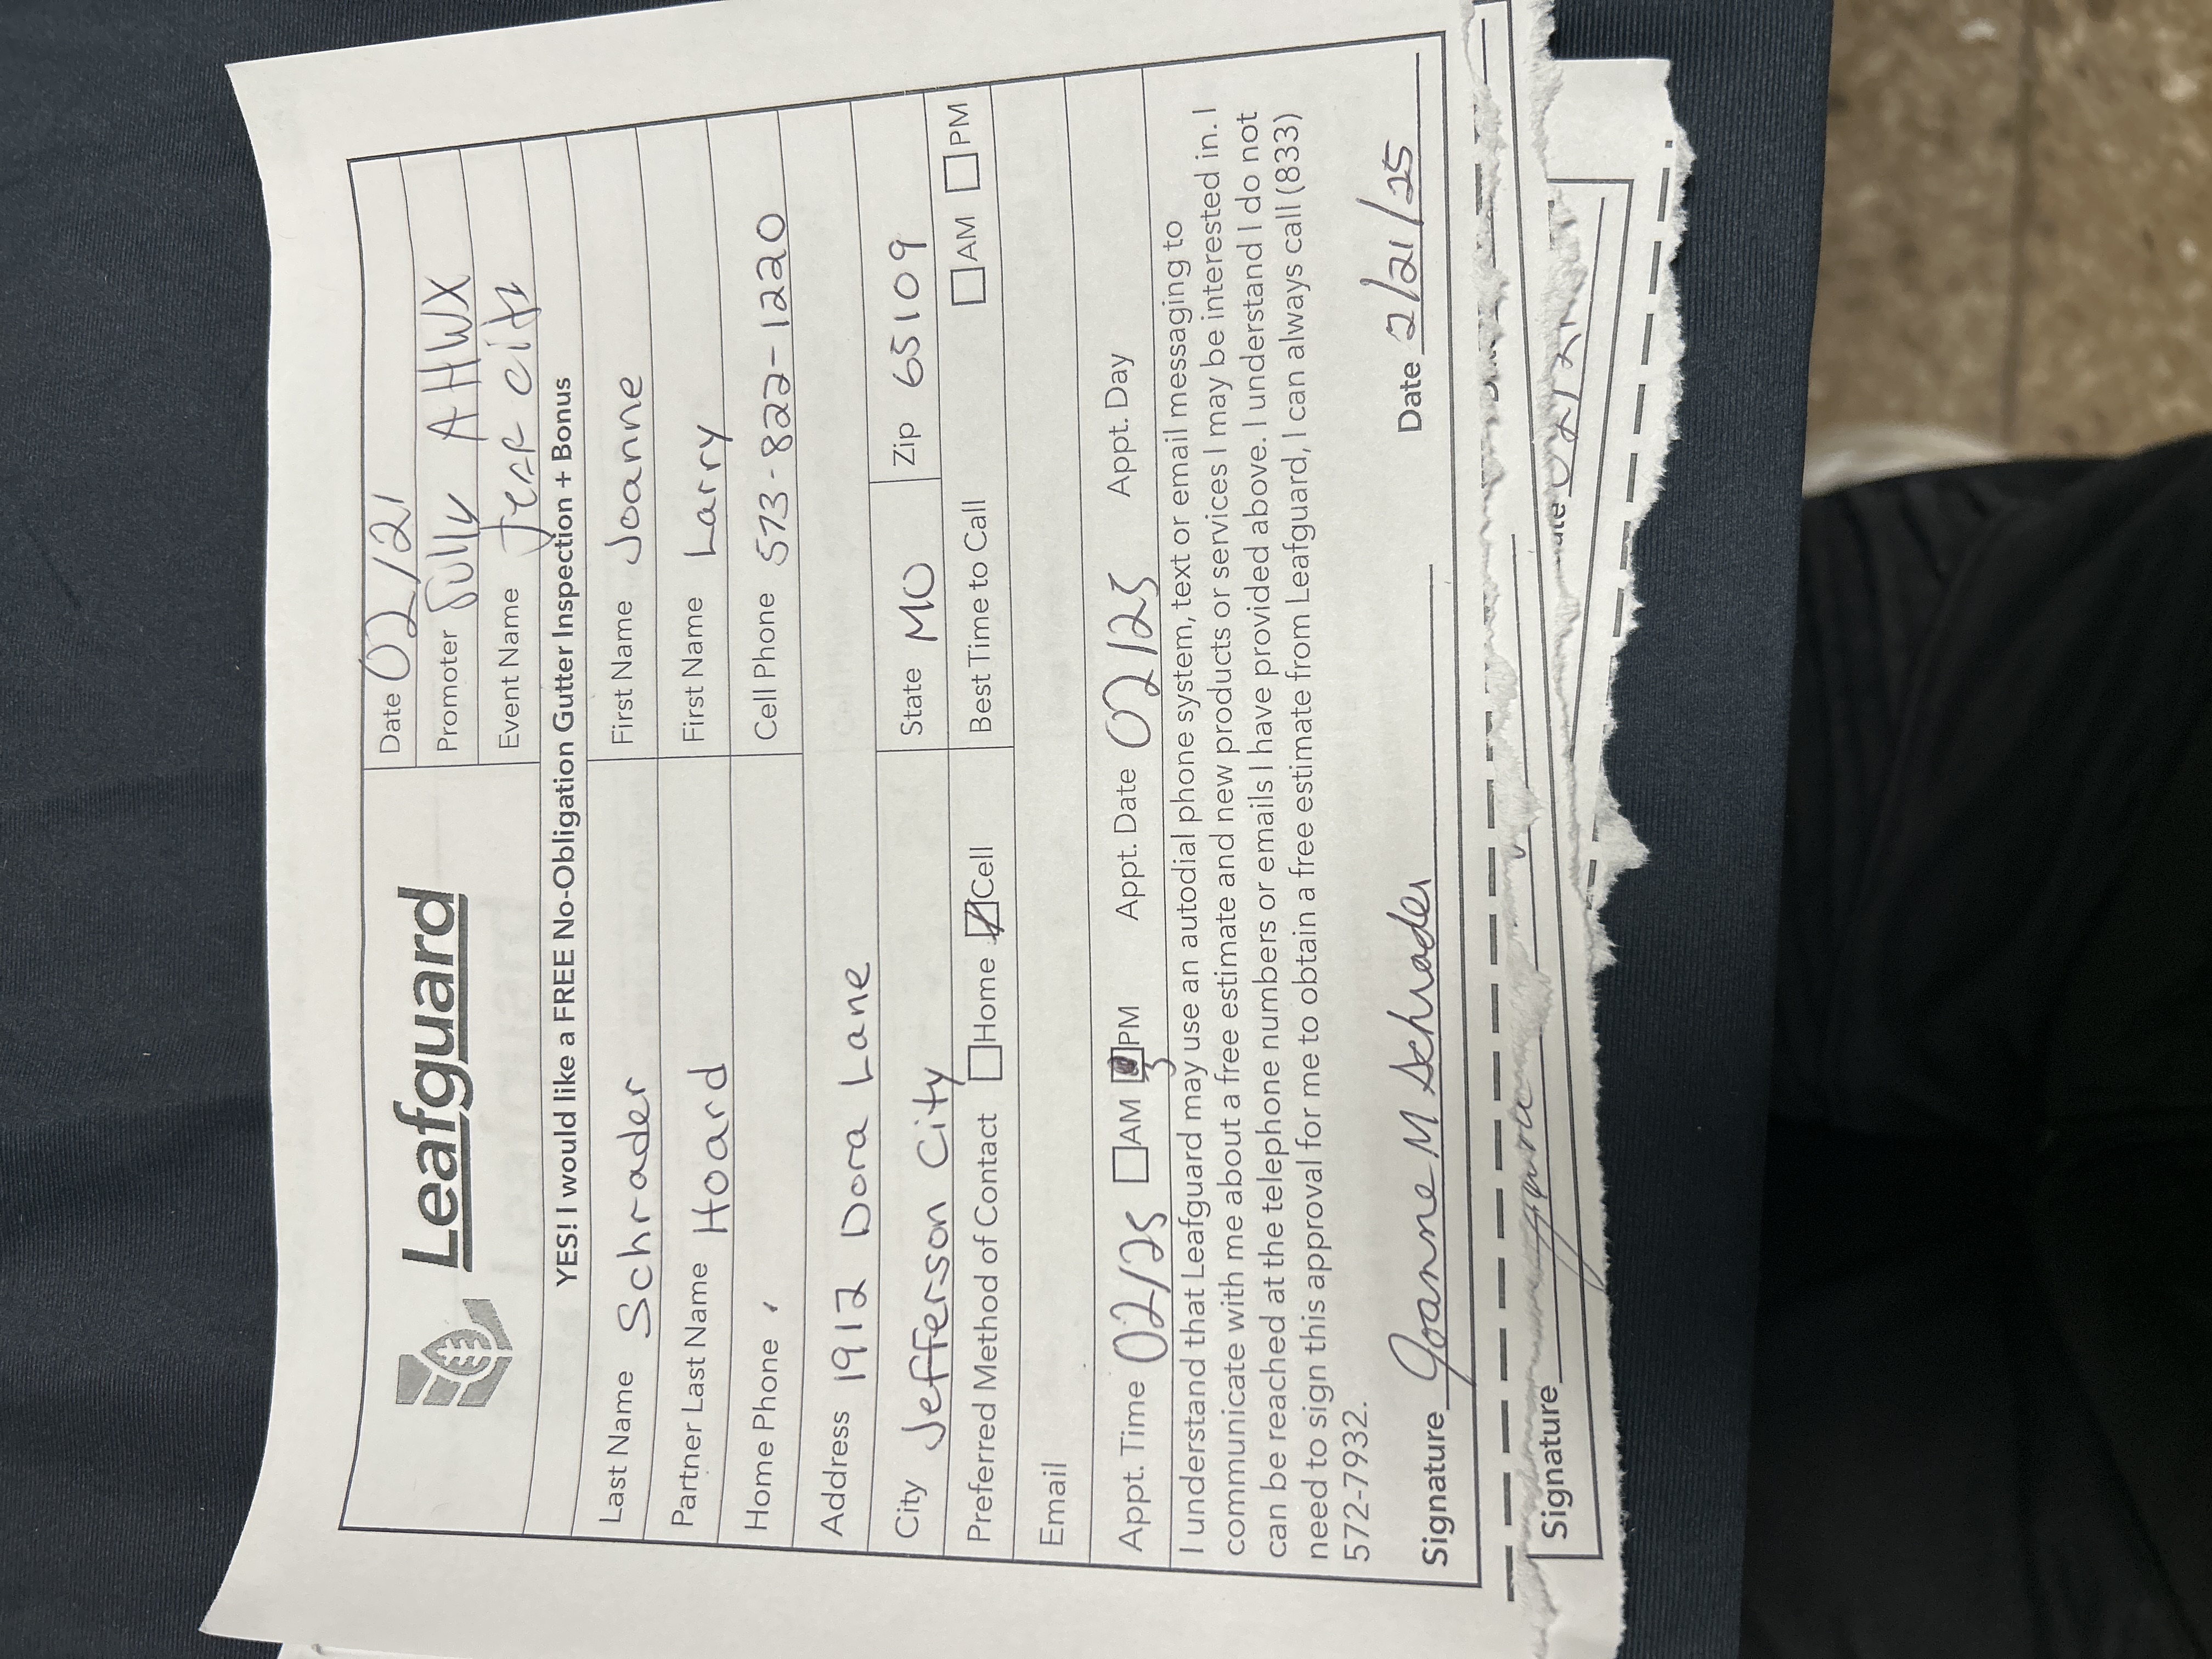 Leafguard
Date 02/21
Promoter Sully AHWX
Event Name Jeff city
YES! I would like a FREE No-Obligation Gutter Inspection + Bonus
Last Name Schrader First Name Joanne
Partner Last Name Hoard First Name Larry
Home Phone Cell Phone 573-822-1220
Address 1912 Dora Lane
City Jefferson City State MO Zip 65109
Preferred Method of Contact Home Cell Best Time to Call AM PM
Email
Appt. Time 02/25 AM PM Appt. Date 02/25 Appt. Day
3
I understand that Leafguard may use an autodial phone system, text or email messaging to
communicate with me about a free estimate and new products or services I may be interested in. I
can be reached at the telephone numbers or emails I have provided above. I understand I do not
need to sign this approval for me to obtain a free estimate from Leafguard, I can always call (833)
572-7932.
Signature Joanne M Schrader Date 2/21/25
Signature